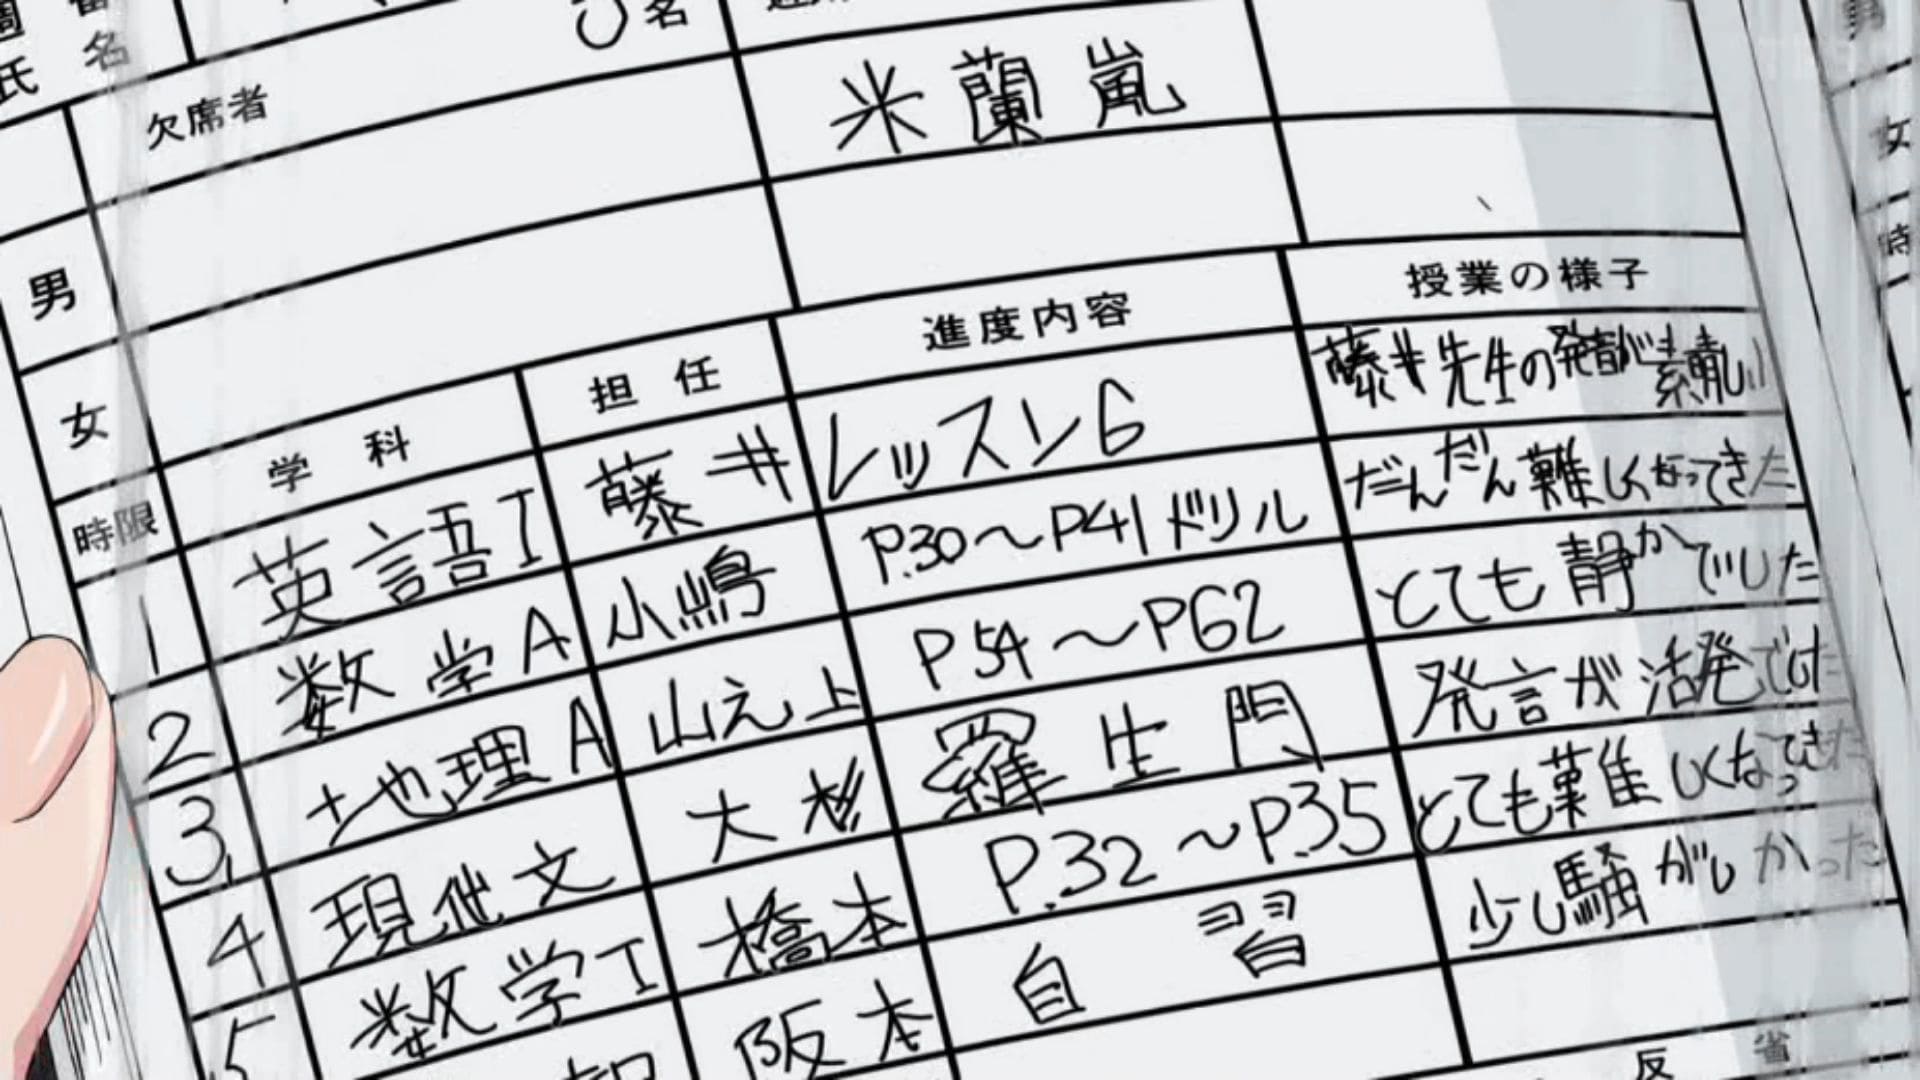 氏名
名
欠席者
米蘭嵐
男
女
時限 学科 担任 進度内容 授業の様子
1 英語I 藤井 レッスン6 藤井先生の発音が素晴しい
2 数学A 小嶋 P.30～P41ドリル だんだん難しくなってきた
3 地理A 山之上 P54～P62 とても静かでした
4 現代文 大杉 羅生門 発言が活発でした
5 数学I 橋本 P.32～P.35 とても難しくなってきた
阪本 自習 少し騒がしかった
反省
女
時